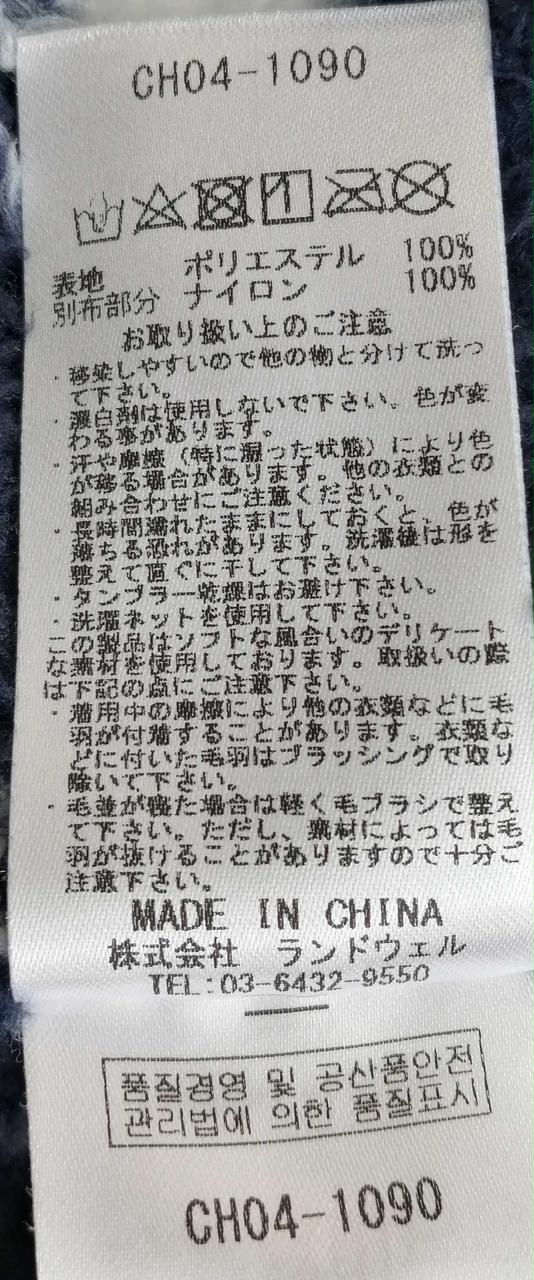 CH04-1090
表地 ポリエステル 100%
別布部分 ナイロン 100%
お取り扱い上のご注意
・移染しやすいので他の物と分けて洗っ
て下さい。
・漂白剤は使用しないで下さい。色が変
わる事があります。
・汗や摩擦（特に湿った状態）により色
が移る場合があります。他の衣類との
組み合わせにご注意ください。
・長時間濡れたままにしておくと、色が
落ちる恐れがあります。洗濯後は形を
整えて直ぐに干して下さい。
・タンブラー乾燥はお避け下さい。
・洗濯ネットを使用して下さい。
この製品はソフトな風合いのデリケート
な素材を使用しております。取扱いの際
は下記の点にご注意下さい。
・着用中の摩擦により他の衣類などに毛
羽が付着することがあります。衣類な
どに付いた毛羽はブラッシングで取り
除いて下さい。
・毛並が寝た場合は軽く毛ブラシで整え
て下さい。ただし、素材によっては毛
羽が抜けることがありますので十分ご
注意下さい。
MADE IN CHINA
株式会社 ランドウェル
TEL:03-6432-9550
품질경영 및 공산품안전
관리법에 의한 품질표시
CH04-1090